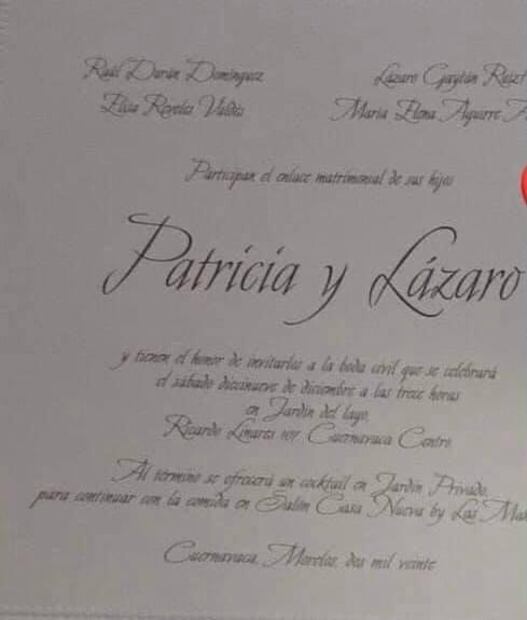 Raúl Durán Domínguez
Elisa Reveles Valdés
Lázaro Gaytán
María Elena Aguirre
Participan el enlace matrimonial de sus hijos
Patricia y Lázaro
y tienen el honor de invitarlos a la boda civil que se celebrará
el sábado diecinueve de diciembre a las trece horas
en Jardín del lago,
Ricardo Linares Cuernavaca Centro
Al término se ofrecerá un cocktail en Jardín Privado,
para continuar con la comida en Salón Casa Nueva by Las
Cuernavaca, Morelos, dos mil veinte